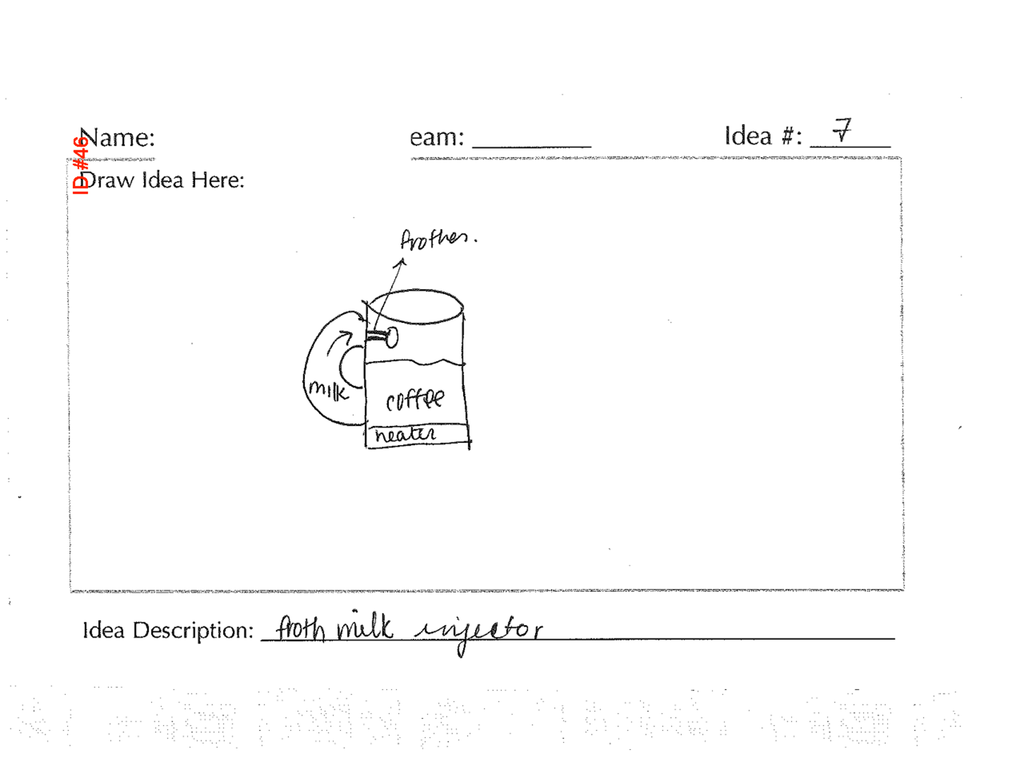 Name: eam: Idea #: 7
ID #46
Draw Idea Here:
frother.
milk
coffee
heater
Idea Description: froth milk injector